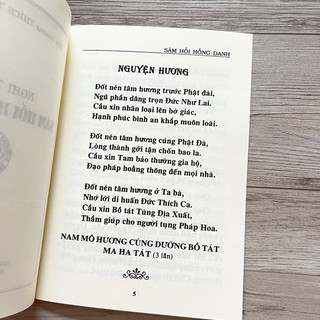 SÁM HỐI HỒNG DANH
NGUYỆN HƯƠNG
Đốt nén tâm hương trước Phật đài,
Ngũ phần dâng trọn Đức Như Lai.
Cầu xin nhân loại lên bờ giác,
Hạnh phúc bình an khắp muôn loài.
Đốt nén tâm hương cúng Phật Đà,
Lòng thành gởi tận chốn bao la.
Cầu xin Tam bảo thường gia hộ,
Đạo pháp hoằng thông đến mọi nhà.
Đốt nén tâm hương ở Ta bà,
Nhớ lời di huấn Đức Thích Ca.
Cầu xin Bồ tát Tùng Địa Xuất,
Thầm giúp cho người tụng Pháp Hoa.
NAM MÔ HƯƠNG CÚNG DƯỜNG BỒ TÁT
MA HA TÁT (3 lần)
5